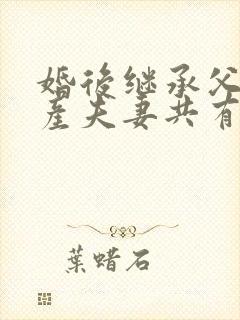 婚後继承父
産夫妻共有
葉蜡石